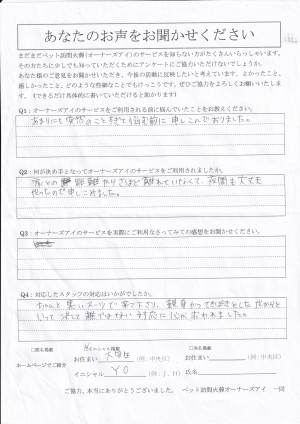 あなたのお声をお聞かせください
まだまだペット訪問火葬(オーナーズアイ)のサービスを知らない方がたくさんいらっしゃいます。
その方たちに少しでも知っていただくためにアンケートにご協力いただけないでしょうか。
あなた様のご意見をお聞かせいただき、今後の活動に反映したいと考えています。よかったこと、
嬉しかったこと、どのような些細なことでもけっこうです。ぜひご協力をよろしくお願いいたしま
す。(できるだけ具体的に書いていただけると助かります)
Q1:オーナーズアイのサービスをご利用される前に悩んでいたことをお教えください。
あまりにも突然のことすぎて悩む前に申しこんでおりました。
Q2:何が決め手となってオーナーズアイのサービスをご利用されましたか。
距離がさほど離れていなくて、夜間も大丈夫
だったので申しこみました。
Q3:オーナーズアイのサービスを実際にご利用なさってみての感想をお聞かせください。
Q4:対応したスタッフの対応はいかがでしたか。
ちゃんと黒いスーツで来て下さり、親身かつてきぱきとした だからと
いって決して雑ではない対応に心から救われました。
□匿名掲載
イニシャル掲載
□実名掲載
ホームページでご紹介
お住まい 大田区 (例:中央区)
お住まい (例:中央区)
イニシャル Y.O (例:J.H)
氏名
ご協力、本当にありがとうございました。 ペット訪問火葬オーナーズアイ 一同